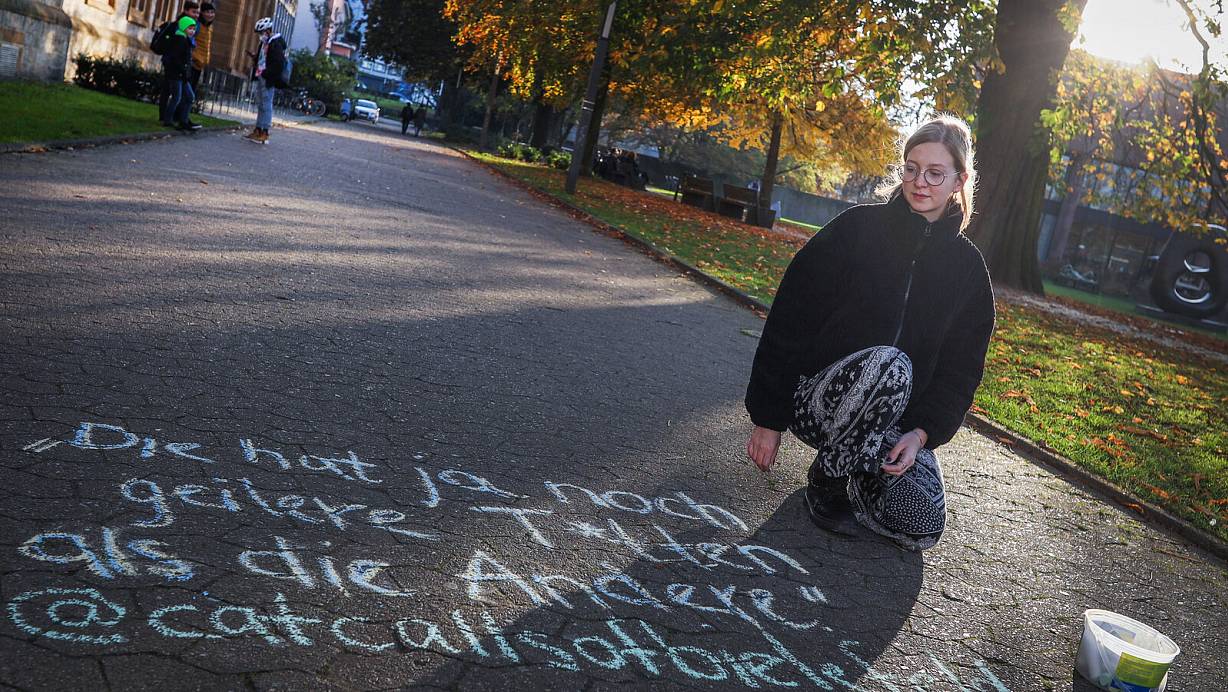 „Die hat ja noch
geilere Titten
als die Andere“
@catcallsofbielefeld